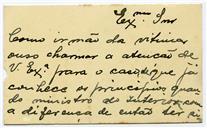 Ex.mo Snr
Como irmão da vitima
ouso chamar a atenção de
V. Ex.ª para o caso, que já
conhece os principios, quan
do ministro do Interior, com
a diferença de então ter si